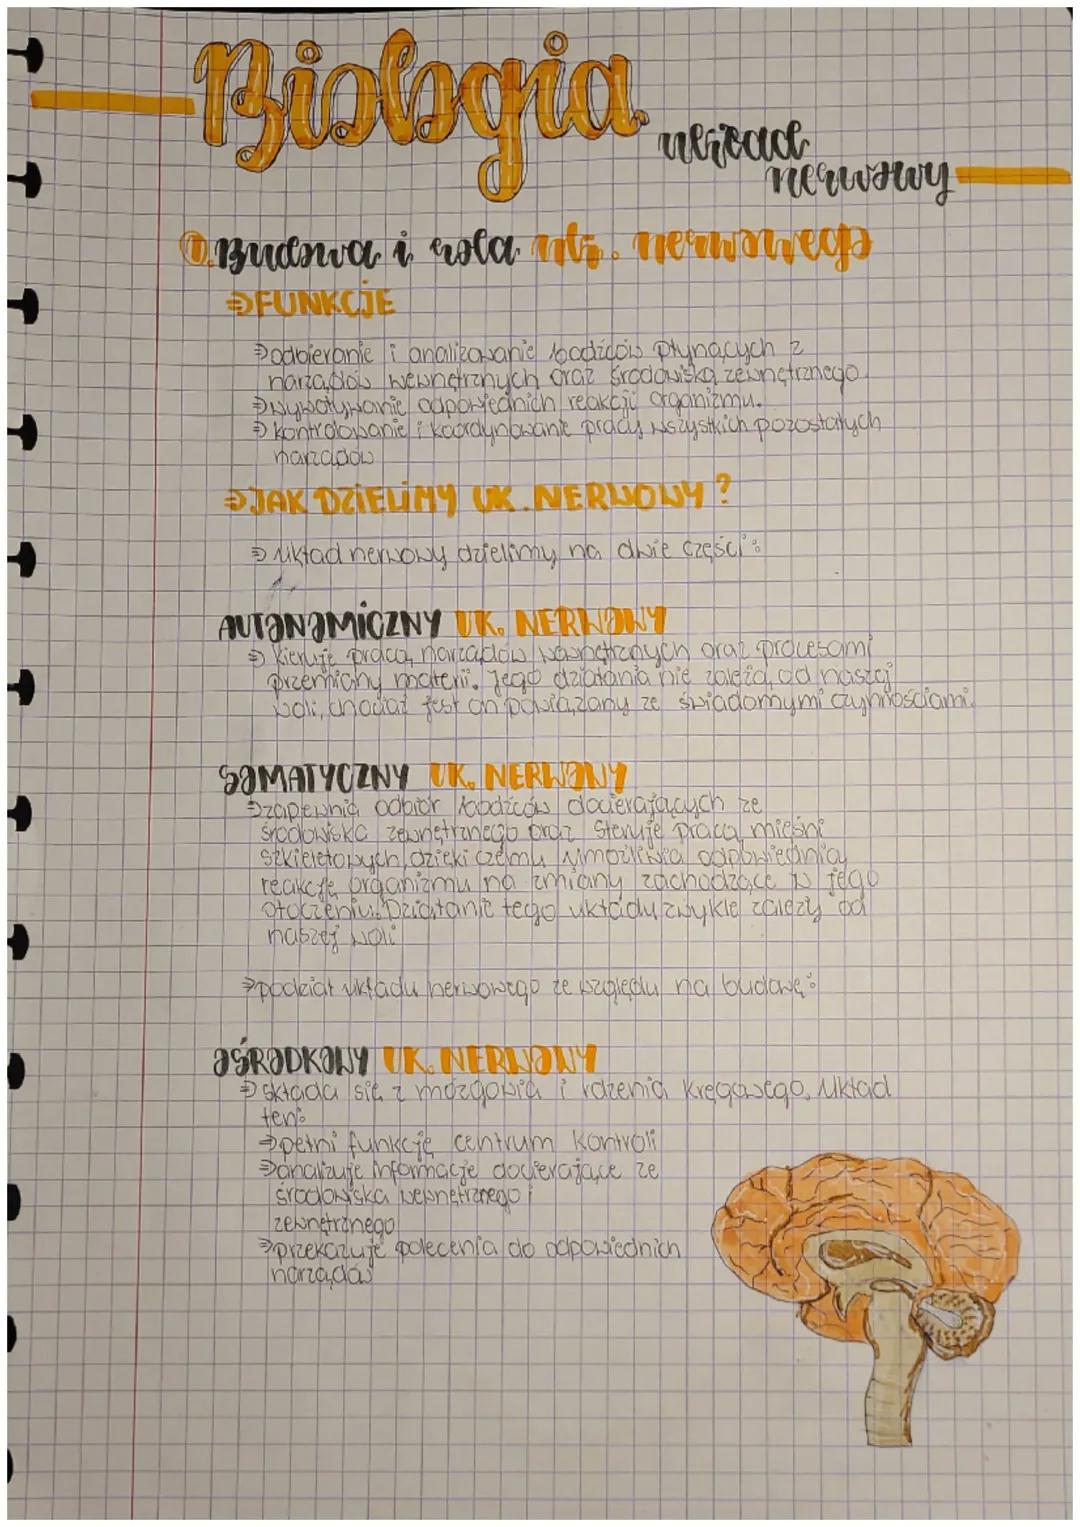 Biologia
układ
nerwowy
1. Budowa i rola ukł. nerwowego
⇒FUNKCJE
⇒odbieranie i analizowanie bodźców płynących z
narządów wewnętrznych oraz środowiska zewnętrznego.
⇒wywoływanie odpowiednich reakcji organizmu.
⇒kontrolowanie i koordynowanie pracy wszystkich pozostałych
narządów
⇒JAK DZIELIMY UK. NERWOWY?
⇒układ nerwowy dzielimy na dwie części:
AUTONOMICZNY UK. NERWOWY
⇒kieruje pracą narządów wewnętrznych oraz procesami
przemiany materii. Jego działania nie zależą od naszej
woli, chociaż jest on powiązany ze świadomymi czynnościami.
SOMATYCZNY UK. NERWOWY
⇒zapewnia odbiór bodźców docierających ze
środowiska zewnętrznego oraz steruje pracą mięśni
szkieletowych, dzięki czemu umożliwia odpowiednią
reakcję organizmu na zmiany zachodzące w jego
otoczeniu. Działanie tego układu zwykle zależy od
naszej woli
⇒podział układu nerwowego ze względu na budowę:
OŚRODKOWY UK. NERWOWY
⇒składa się z mózgowia i rdzenia kręgowego. Układ
ten:
⇒pełni funkcję centrum kontroli
⇒analizuje informacje docierające ze
środowiska wewnętrznego i
zewnętrznego
⇒przekazuje polecenia do odpowiednich
narządów